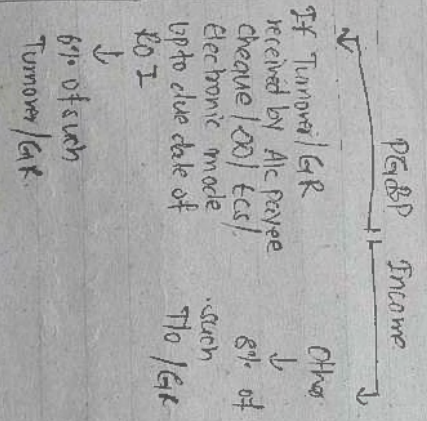 PGBP Income
If Turnover/GR
received by A/c payee
cheque/DD/ECS/
Electronic mode
upto due date of
ROI
↓
6% of such
Turnover/GR.
Other
↓
8% of
such
T/O/GR